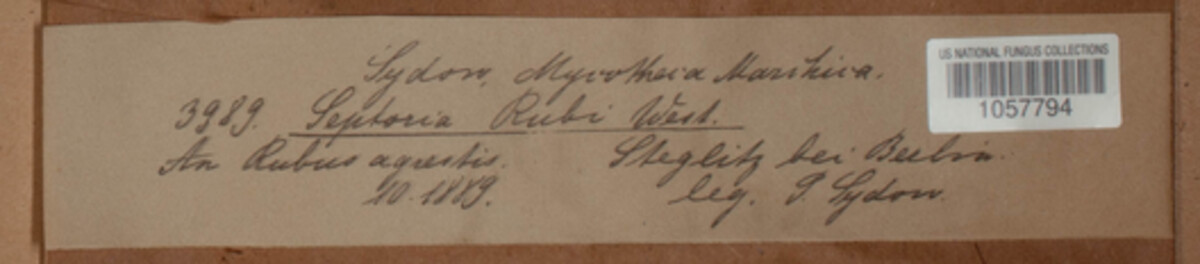 Sydow, Mycotheca Marchica.
3989. Septoria Rubi West.
An Rubus agrestis. Steglitz bei Berlin.
10.1889. leg. P. Sydow.
US NATIONAL FUNGUS COLLECTIONS
1057794